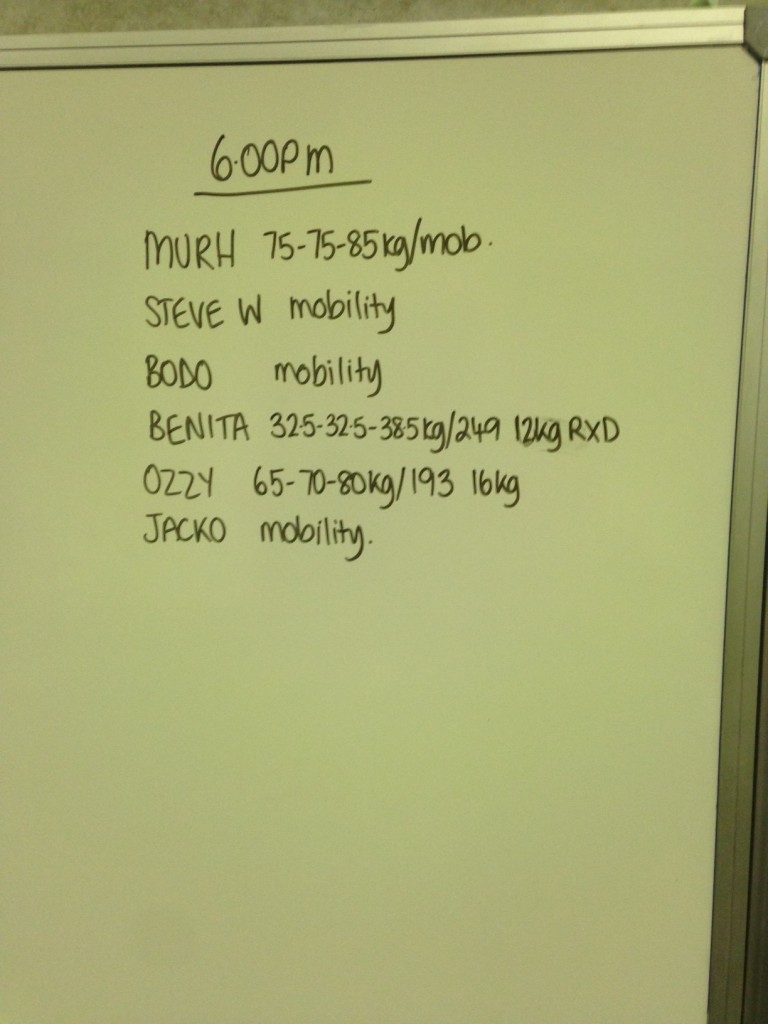 6.00pm
MURH 75-75-85kg/mob.
STEVE W mobility
BODO mobility
BENITA 32.5-32.5-38.5kg/249 12kg RXD
OZZY 65-70-80kg/193 16kg
JACKO mobility.